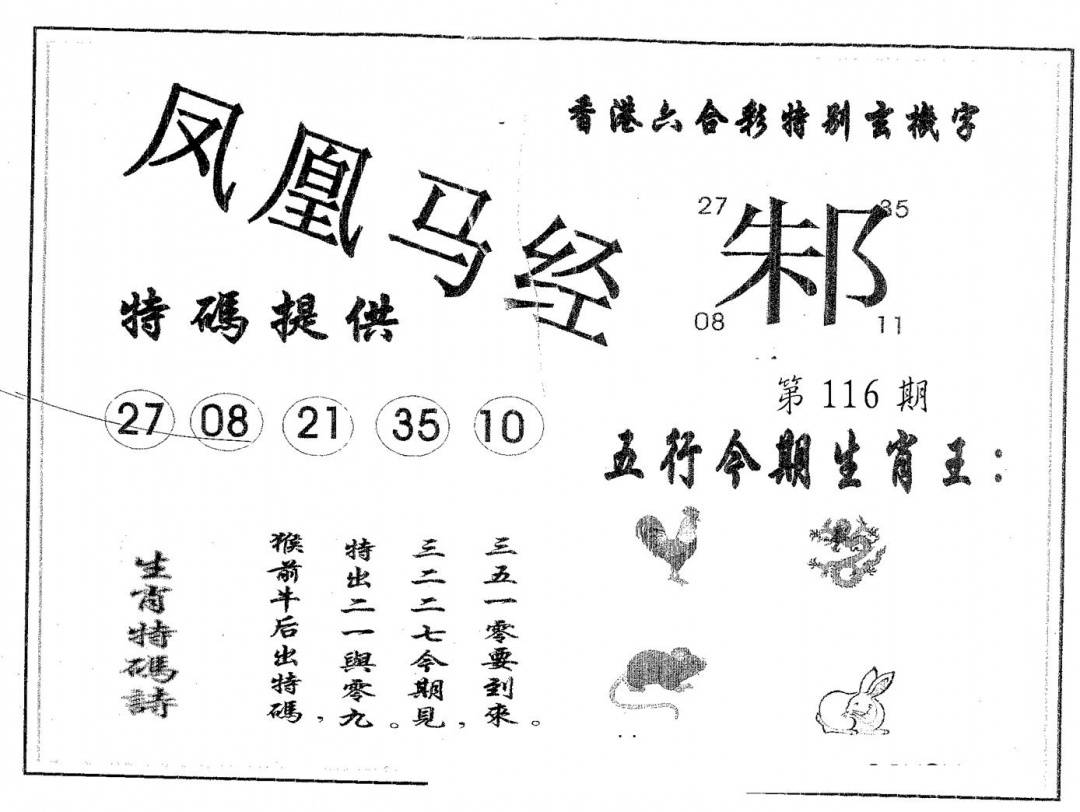 凤凰马经
香港六合彩特别玄機字
27 邾 35
08 11
特碼提供
第116期
27 08 21 35 10
五行今期生肖王：
生肖特碼詩
猴前牛后出特碼，
特出二一與零九。
三二二七今期見，
三五一零要到來。